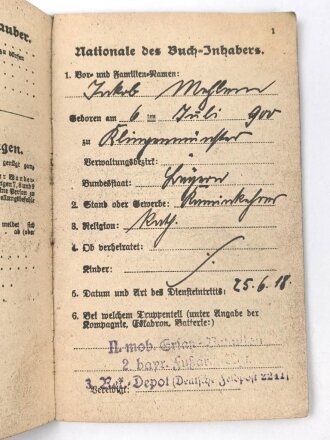 auber.
gen.
1
Nationale des Buch-Inhabers.
1. Vor- und Familien-Namen:
Jakob
Geboren am 6 im Juli 900
zu Klingenmünster
Verwaltungsbezirk:
Bundesstaat: Bayern
2. Stand oder Gewerbe: Kaminkehrer
3. Religion: Kath.
4. Ob verheiratet:
Kinder:
5. Datum und Art des Diensteintritts: 25.6.18.
6. Bei welchem Truppenteil (unter Angabe der
Kompagnie, Eskadron, Batterie):
II. mob. Ersatz-Bataillon
2. bayr. Fußar.
3. Depot (Deutsche Feldpost 2241)
Vereidigt: